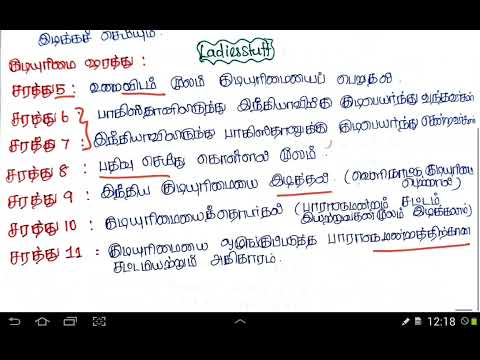 இடிக்கச் செய்யும்.
Ladiesstuff
குடியுரிமை ஷரத்து :
சரத்து 5 : உறைவிடம் மூலம் குடியுரிமையைப் பெறுதல்.
சரத்து 6 பாகிஸ்தானிலிருந்து இந்தியாவிற்கு குடிபெயர்ந்து வந்தவர்கள்
சரத்து 7 : இந்தியாவிலிருந்து பாகிஸ்தானுக்கு குடிபெயர்ந்து சென்றவர்கள்
சரத்து 8 : பதிவு செய்து கொள்ளல் மூலம்.
சரத்து 9 : இந்திய குடியுரிமையை இழத்தல் (வெளிநாட்டு குடியுரிமை பெற்றால்)
சரத்து 10 : குடியுரிமையைத்தொடர்தல் (பாராளுமன்றம் சட்டம் இயற்றுவதன் மூலம் இழக்கலாம்)
சரத்து 11 : குடியுரிமையை ஒழுங்குபடுத்த பாராளுமன்றத்திற்கான
சட்டமியற்றும் அதிகாரம்.
12:18